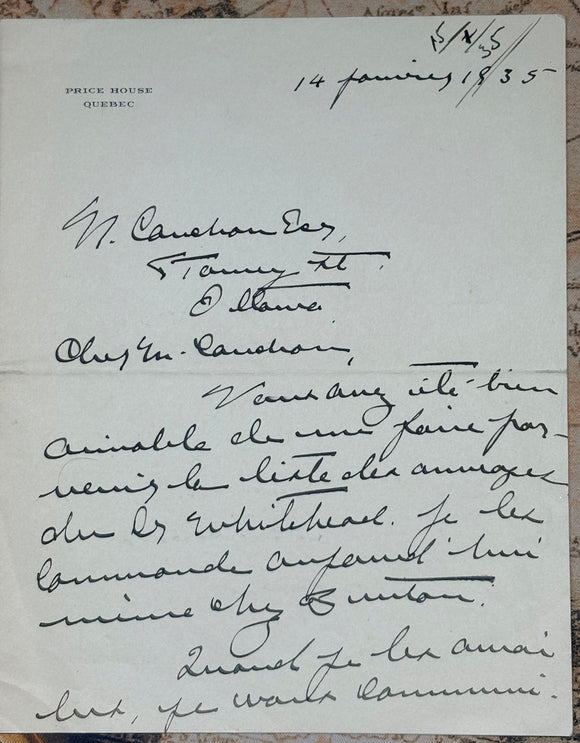 15/1/35
PRICE HOUSE
QUEBEC
14 janvier 1935
N. Cauchon Esq,
St.
Ottawa
Cher M. Cauchon,
Vous avez été bien
aimable de me faire par-
venir la liste des ouvrages
du Dr Whitehead. Je les
commande aujourd'hui
même chez Brentano.
Quand je les aurai
lus, je vous communi-